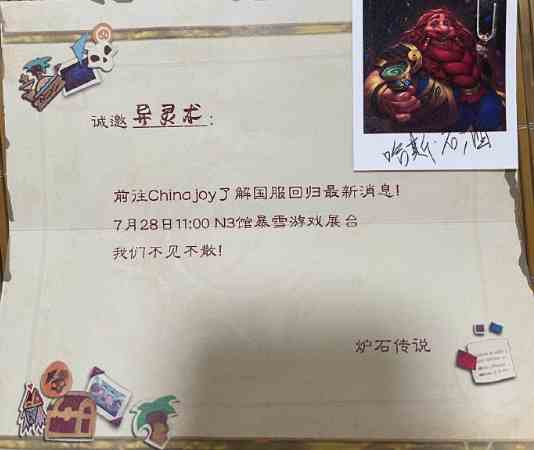 诚邀 异灵术：
前往Chinajoy了解国服回归最新消息！
7月28日11:00 N3馆暴雪游戏展台
我们不见不散！
炉石传说
哈斯·石